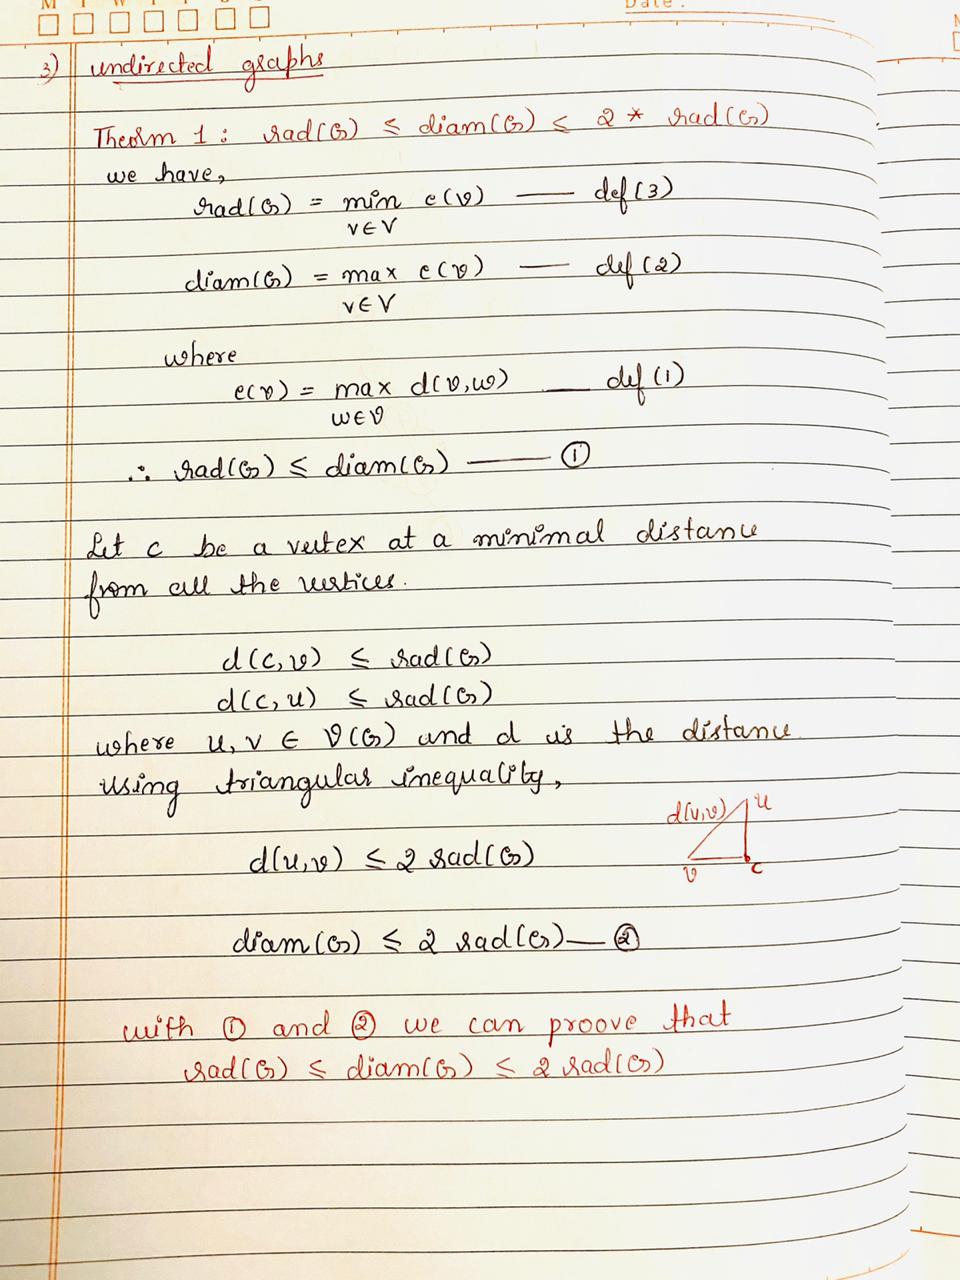 Date :
3) undirected graphs
Theorm 1 : rad(G) ≤ diam(G) ≤ 2 * rad(G)
we have,
rad(G) = min e(v) —— def(3)
v∈V
diam(G) = max e(v) —— def(2)
v∈V
where
e(v) = max d(v,w) —— def(1)
w∈V
∴ rad(G) ≤ diam(G) —— ①
Let c be a vertex at a minimal distance
from all the vertices.
d(c,v) ≤ rad(G)
d(c,u) ≤ rad(G)
where u,v ∈ V(G) and d is the distance
using triangular inequality,
d(u,v) u
d(u,v) ≤ 2 rad(G)
v c
diam(G) ≤ 2 rad(G) — ②
with ① and ② we can proove that
rad(G) ≤ diam(G) ≤ 2 rad(G)